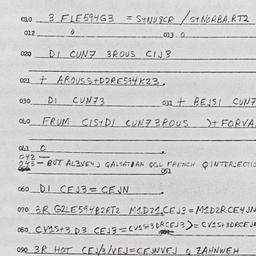 010 3 FLE594G3 = S+NU8CR / S+NORBA.RT2
012 0 013 0
020 DI CUN7 3ROUS C1J3
021 + AROUSS+D2RE594K23.
030 DI CUN73 031 + BEJSI CUN7
010 FRUM CIS+DI CUN73ROUS )+ FORVA
011 0
042
043 - BOT AL3VE4J GALSATIAN QGL FRENCH QINTERJECTIO
051
060 DI CEJ3 = CEJN
070 3R G2LE594B2RT2 M1D21.CEJ3 = M1D2RCE4JN
080 CV1S+3 D3 CEJ3 = CV1S+3DRCEJ3) = CV1S+3DRCEJN
090 3R HOT CEJ3/VEJ = CEJNVEJ Q ZAHNWEH